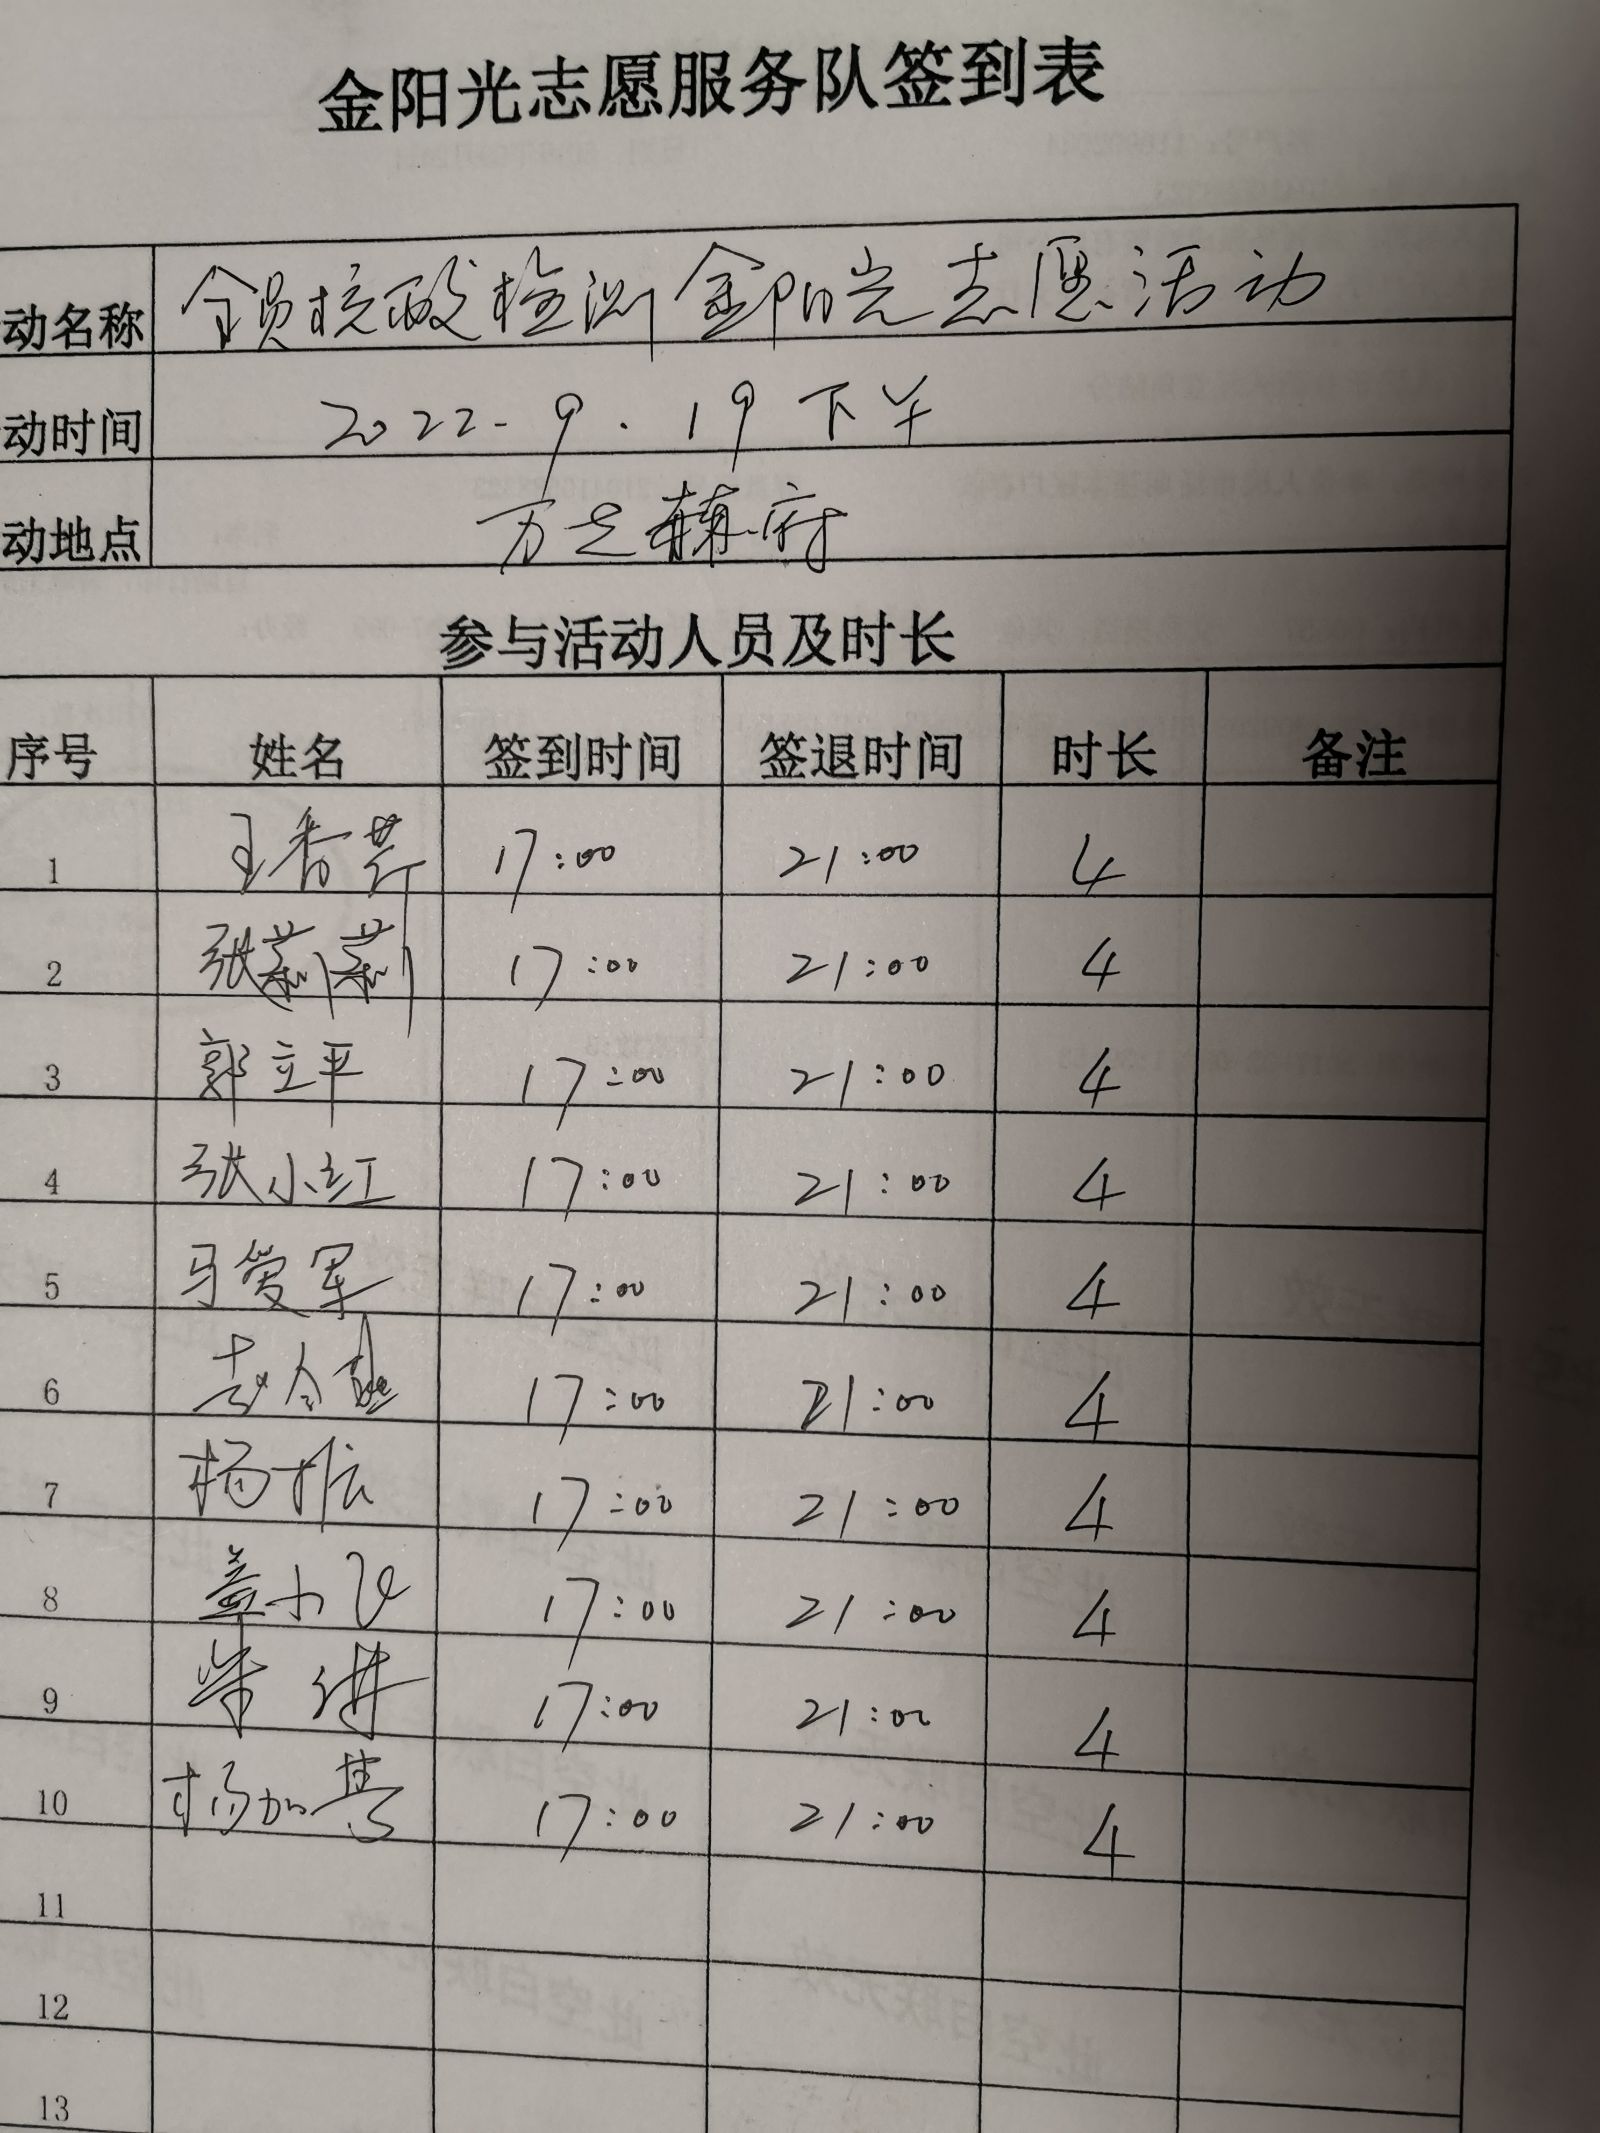 金阳光志愿服务队签到表
动名称 全员核酸检测金阳光志愿活动
动时间 2022.9.19下午
动地点 府
参与活动人员及时长
序号 姓名 签到时间 签退时间 时长 备注
1 王香芹 17:00 21:00 4
2 张莉莉 17:00 21:00 4
3 郭立平 17:00 21:00 4
4 张小红 17:00 21:00 4
5 马爱军 17:00 21:00 4
6 17:00 21:00 4
7 杨 17:00 21:00 4
8 盖小飞 17:00 21:00 4
9 柴 17:00 21:00 4
10 杨加慧 17:00 21:00 4
11
12
13